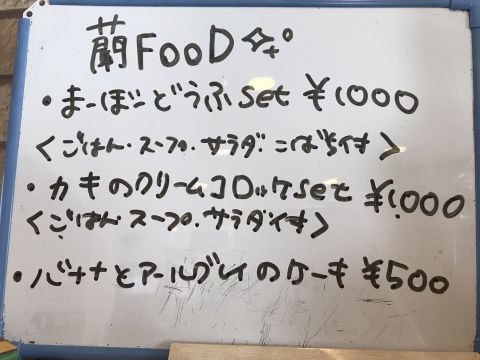 蘭FooD
・まーぼーどうふset ¥1000
<ごはん・スープ・サラダ・こばち付き>
・カキのクリームコロッケset ¥1,000
<ごはん・スープ・サラダ付き>
・バナナとアールグレイのケーキ ¥500